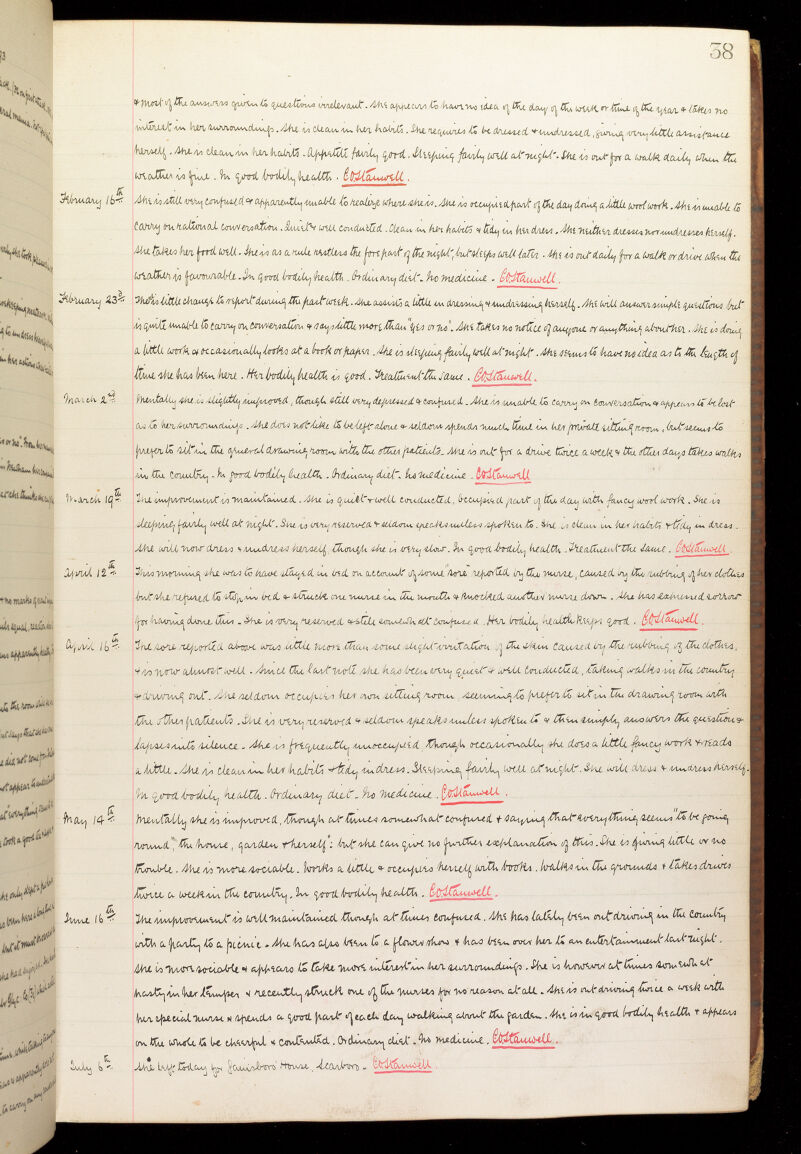 38
& most of the answers given to questions irrelevant. She appears to have no idea of the day of the week or time of the year & takes no
interest in her surroundings. She is clean in her habits. She requires to be dressed & undressed, giving very little assistance
herself. She is clean in her habits. Appetite fairly good. Sleeping fairly well at night. She is out for a walk daily when the
weather is fine. In good bodily health.
February 16th She is still very confused & apparently unable to realize where she is. She is occupied part of the day doing a little wool work. She is unable to
carry on rational conversation. Quiet & well conducted. Clean in her habits & tidy in her dress. She neither dresses nor undresses herself.
She takes her food well. She is as a rule restless the fore part of the night, but sleeps well later. She is out daily for a walk or drive when the
weather is favourable. In good bodily health. Ordinary diet. No medicine.
February 23rd There is little change to report during the past week. She assists a little in dressing & undressing herself. She will answer simple questions but
is quite unable to carry on conversation & says little more than "yes or no". She takes no notice of anyone or anything about her. She is doing
a little work & occasionally looks at a book or paper. She is sleeping fairly well at night. She seems to have no idea as to the length of
time she has been here. Her bodily health is good. Treatment the same.
March 2nd Mentally she is slightly improved, though still very depressed & confused. She is unable to carry on conversation & appears to be lost
as to her surroundings. She does not like to be left alone & seldom spends much time in her private sitting room, but seems to
prefer to sit in the general drawing room with the other patients. She is out for a drive twice a week & the other days takes walks
in the country. In good bodily health. Ordinary diet. No medicine.
March 19th The improvement is maintained. She is quiet & well conducted, occupied part of the day with fancy wool work. She is
sleeping fairly well at night. She is very reserved & seldom speaks unless spoken to. She is clean in her habits & tidy in dress.
She will now dress & undress herself, though she is very slow. In good bodily health. Treatment the same.
April 12th This morning she was to have stayed in bed on account of some "sore" reported by the nurse, caused by the rubbing of her clothes
but she refused to stop in bed & struck one nurse in the mouth & knocked another nurse down. She has expressed sorrow
for having done this. She is very reserved & still somewhat confused. Her bodily health keeps good.
April 16th The sore reported above was little more than some slight irritation of the skin caused by the rubbing of the clothes,
& is now almost well. Since the last note she has been very quiet & well conducted, taking walks in the country
& driving out. She seldom occupies her own sitting room, seeming to prefer to sit in the drawing room with
the other patients. She is very reserved & seldom speaks unless spoken to & then simply answers the question &
lapses into silence. She is frequently unoccupied, though occasionally she does a little fancy work & reads
a little. She is clean in her habits & tidy in dress. Sleeping fairly well at night. She will dress & undress herself.
In good bodily health. Ordinary diet. No medicine.
May 14th Mentally she is improved, though at times somewhat confused & saying that everything seems "to be going
round", "the house, garden & herself": but she can give no further explanation of this. She is giving little or no
trouble. She is more sociable. Works a little & occupies herself with books. Walks in the grounds & takes drives
twice a week in the country. In good bodily health.
June 16th The improvement is well maintained though at times confused. She has lately been out driving in the country
with a party to a picnic. She has also been to a flower show & has been over her to an entertainment last night.
She is more sociable & appears to take more interest in her surroundings. She is however at times somewhat
hasty in her temper & recently struck one of the nurses for no reason at all. She is out driving twice a week with
her special nurse & spends a good part of each day walking about the garden. She is in good bodily health & appears
on the whole to be cheerful & contented. Ordinary diet. No medicine.
July 6th She left today for House, Scarboro.